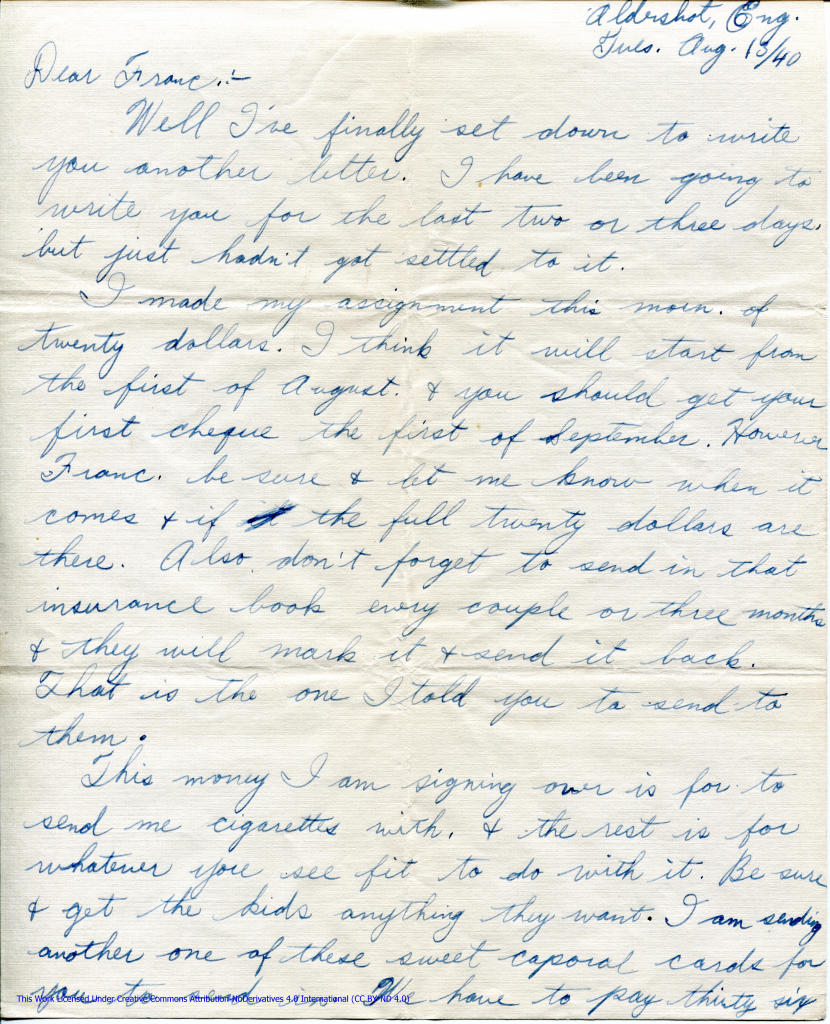 Aldershot, Eng.
Tues. Aug. 13/40
Dear Franc.:-
Well I've finally set down to write
you another letter. I have been going to
write you for the last two or three days,
but just hadn't got settled to it.
I made my assignment this morn. of
twenty dollars. I think it will start from
the first of August. & you should get your
first cheque the first of September. However
Franc. be sure & let me know when it
comes & if the full twenty dollars are
there. Also don't forget to send in that
insurance book every couple or three months
& they will mark it & send it back.
That is the one I told you to send to
them.
This money I am signing over is for to
send me cigarettes with, & the rest is for
whatever you see fit to do with it. Be sure
& get the kids anything they want. I am sending
another one of these sweet caporal cards for
you to send in. We have to pay thirty six
This Work Licensed Under Creative Commons Attribution-NoDerivatives 4.0 International (CC BY-ND 4.0)